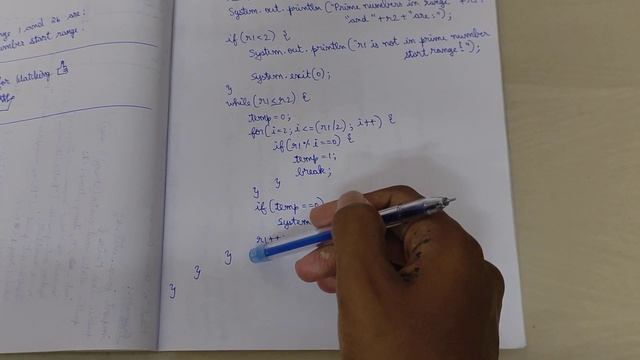 ge 1 and 26 are:
umber start range.
for Watching
System.out.println("Prime numbers in range "+r1+
"and "+r2+" are:");
if(r1<2) {
System.out.println("r1 is not in prime number
start range!");
System.exit(0);
}
while(r1≤r2) {
temp=0;
for(i=2; i<=(r1/2); i++) {
if(r1%i==0) {
temp=1;
break;
}
}
if(temp==0)
System
r1++
}
}
}